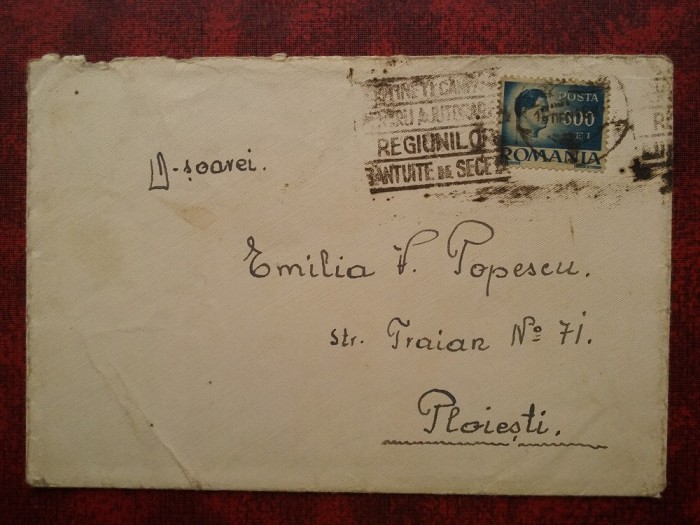 REGIUNILO
BÂNTUITE DE SECE
POSTA
600
LEI
ROMANIA
D-șoarei.
Emilia V. Popescu.
str. Traian No 71.
Ploiești.